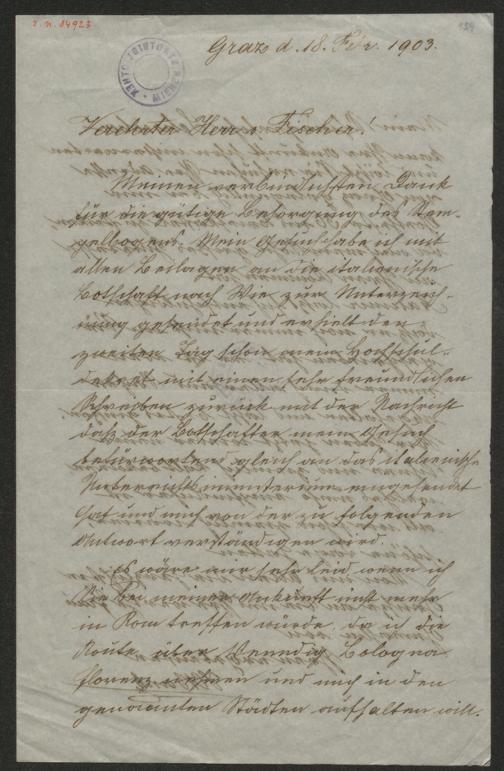 I. N. 84923
134
Graz d. 18. Febr. 1903.
Verehrter Herr v Fischer!
Meinen verbindlichsten Dank
für die gütige Besorgung des Stem-
pelbogens. Mein Gesuch habe ich mit
allen Beilagen an die italienische
Botschaft nach Wien zur Unterzeich-
nung gesendet und erhielt den
zweiten Tag schon mein Hochschul-
dekret mit einen sehr freundlichen
Schreiben zurück mit der Nachricht
daß der Botschafter mein Gesuch
befürwortend gleich an das italienische
Unterrichtsministerium eingesendet
hat und mich von der zu folgenden
Antwort verständigen wird.
Es wäre mir sehr leid wenn ich
Sie bei meiner Ankunft nicht mehr
in Rom treffen würde, da ich die
Route über Venedig Bologna
Florenz nehmen und mich in den
genannten Städten aufhalten will.